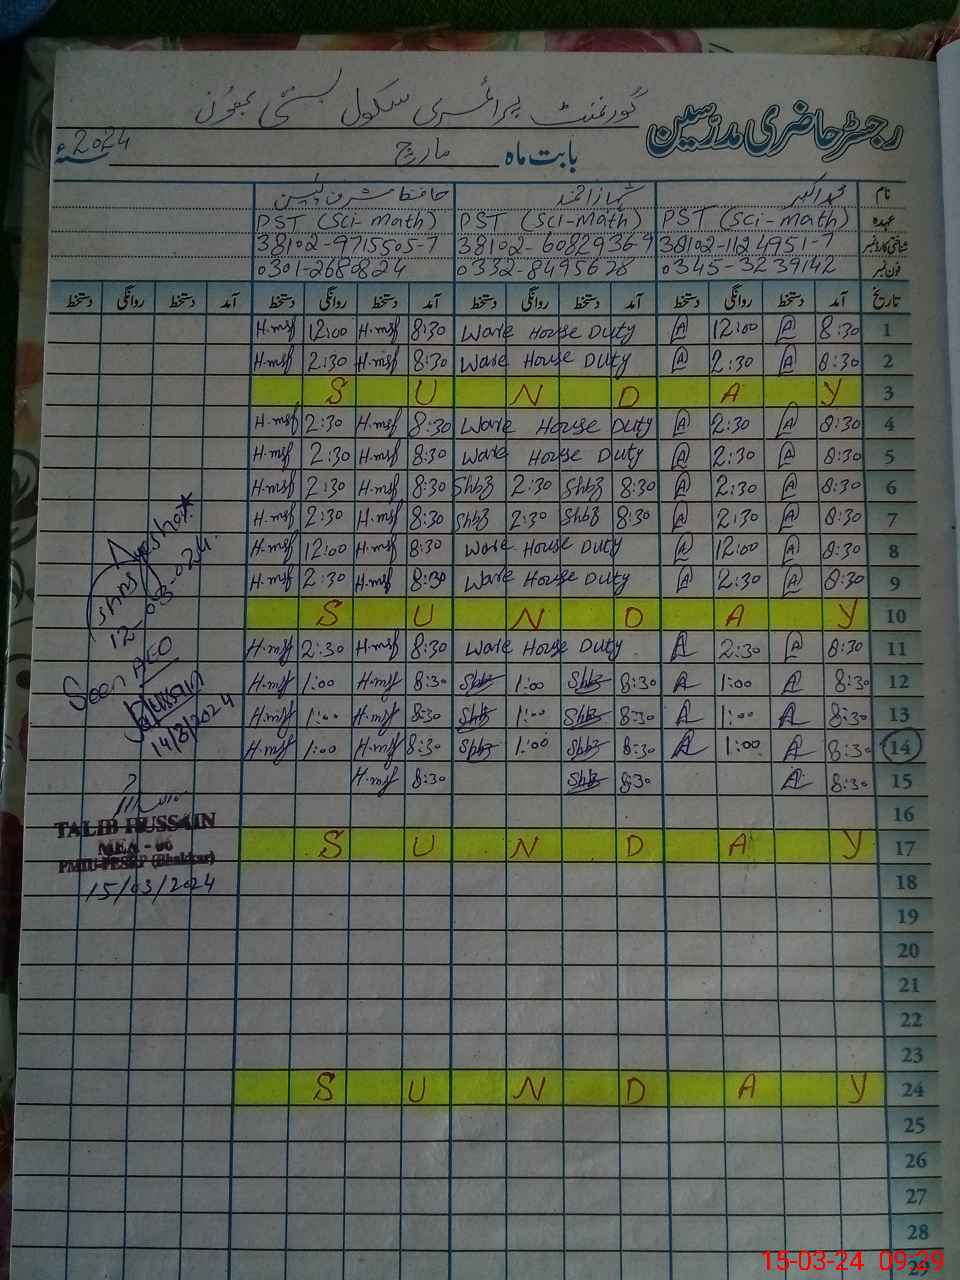 رجسٹر حاضری مدرسین گورنمنٹ پرائمری سکول بستی
بابت ماہ مارچ 2024ء
نام محمد اکبر شہباز احمد حافظ مشرف یٰسین
عہدہ PST (Sci-math) PST (Sci-math) PST (Sci-math)
شناختی کارڈ نمبر 38102-1124951-7 38102-6082936-9 38102-9715505-7
فون نمبر 0345-3239142 0332-8495628 0301-2680824
تاریخ آمد دستخط روانگی دستخط آمد دستخط روانگی دستخط آمد دستخط روانگی دستخط آمد دستخط روانگی دستخط
H.msf 12:00 H.msf 8:30 Ware House Duty A 12:00 A 8:30 1
H.msf 2:30 H.msf 8:30 Ware House Duty A 2:30 A 8:30 2
S U N D A Y 3
H.msf 2:30 H.msf 8:30 Ware House Duty A 2:30 A 8:30 4
H.msf 2:30 H.msf 8:30 Ware House Duty A 2:30 A 8:30 5
H.msf 2:30 H.msf 8:30 Shbz 2:30 Shbz 8:30 A 2:30 A 8:30 6
H.msf 2:30 H.msf 8:30 Shbz 2:30 Shbz 8:30 A 2:30 A 8:30 7
H.msf 12:00 H.msf 8:30 Ware House Duty A 12:00 A 8:30 8
H.msf 2:30 H.msf 8:30 Ware House Duty A 2:30 A 8:30 9
S U N D A Y 10
H.msf 2:30 H.msf 8:30 Ware House Duty A 2:30 A 8:30 11
H.msf 1:00 H.msf 8:30 Shbz 1:00 Shbz 8:30 A 1:00 A 8:30 12
H.msf 1:00 H.msf 8:30 Shbz 1:00 Shbz 8:30 A 1:00 A 8:30 13
H.msf 1:00 H.msf 8:30 Shbz 1:00 Shbz 8:30 A 1:00 A 8:30 14
H.msf 8:30 Shbz 8:30 A 8:30 15
16
S U N D A Y 17
18
19
20
21
22
23
S U N D A Y 24
25
26
27
28
29
12-03-024
Seen AEO
14/3/2024
TALIB HUSSAIN
MEA - 06
PMIU-PESRP (Bhakkar)
15/03/2024
15-03-24 09:29